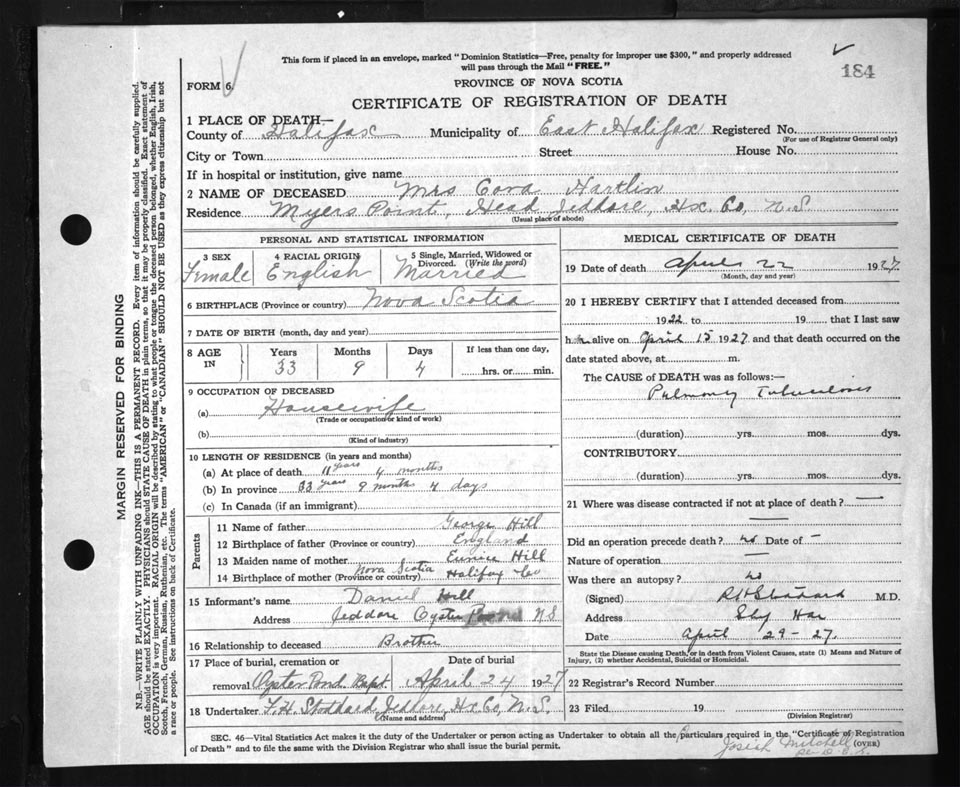 This form if placed in an envelope, marked "Dominion Statistics—Free, penalty for improper use $300," and properly addressed
will pass through the Mail "FREE."
184
FORM 6
PROVINCE OF NOVA SCOTIA
CERTIFICATE OF REGISTRATION OF DEATH
1 PLACE OF DEATH—
County of Halifax Municipality of East Halifax Registered No.
(For use of Registrar General only)
City or Town Street House No.
If in hospital or institution, give name
2 NAME OF DECEASED Mrs Cora Hartlin
Residence Myers Point, Head Jeddore, Hx. Co, N.S
(Usual place of abode)
PERSONAL AND STATISTICAL INFORMATION
3 SEX 4 RACIAL ORIGIN 5 Single, Married, Widowed or
Divorced. (Write the word)
Female English Married
6 BIRTHPLACE (Province or country) Nova Scotia
7 DATE OF BIRTH (month, day and year)
8 AGE IN Years Months Days If less than one day,
33 9 4 hrs. or min.
9 OCCUPATION OF DECEASED
(a) Housewife
(Trade or occupation or kind of work)
(b)
(Kind of industry)
10 LENGTH OF RESIDENCE (in years and months)
(a) At place of death 11 years 4 months
(b) In province 33 years 9 months 4 days
(c) In Canada (if an immigrant)
Parents
11 Name of father George Hill
12 Birthplace of father (Province or country) England
13 Maiden name of mother Eunice Hill
14 Birthplace of mother (Province or country) Nova Scotia Halifax Co
15 Informant's name Daniel Hill
Address Jeddore Oyster Pond NS
16 Relationship to deceased Brother
17 Place of burial, cremation or Date of burial
removal Oyster Pond. Bapt. April 24 1927
18 Undertaker F. H. Stoddard, Jeddore, Hx Co, N.S.
(Name and address)
MEDICAL CERTIFICATE OF DEATH
19 Date of death April 22 1927
(Month, day and year)
20 I HEREBY CERTIFY that I attended deceased from
1922 to 19 that I last saw
h alive on April 15 1927 and that death occurred on the
date stated above, at m.
The CAUSE of DEATH was as follows:—
Pulmonry Tuberculosis
(duration) yrs. mos. dys.
CONTRIBUTORY
(duration) yrs. mos. dys.
21 Where was disease contracted if not at place of death? —
—
Did an operation precede death? no Date of —
Nature of operation —
Was there an autopsy? no
(Signed) M.D.
Address
Date April 29 - 27.
State the Disease causing Death, or in death from Violent Causes, state (1) Means and Nature of
Injury, (2) whether Accidental, Suicidal or Homicidal.
22 Registrar's Record Number
23 Filed 19
(Division Registrar)
SEC. 46—Vital Statistics Act makes it the duty of the Undertaker or person acting as Undertaker to obtain all the particulars required in the "Certificate of Registration
of Death" and to file the same with the Division Registrar who shall issue the burial permit.
(OVER)
Josiah Mitchell
MARGIN RESERVED FOR BINDING
N.B.—WRITE PLAINLY WITH UNFADING INK—THIS IS A PERMANENT RECORD. Every item of information should be carefully supplied.
AGE should be stated EXACTLY. PHYSICIANS should STATE CAUSE OF DEATH in plain terms, so that it may be properly classified. Exact statement of
OCCUPATION is very important. RACIAL ORIGIN will be described by stating to what people or tongue the deceased person belonged, whether English, Irish,
Scotch, French, German, Russian, Ruthenian, etc. The terms "AMERICAN" or "CANADIAN" SHOULD NOT BE USED as they express citizenship but not
a race or people. See instructions on back of Certificate.